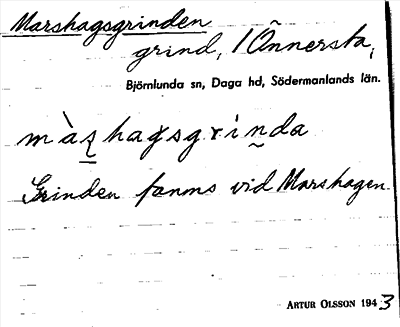 Marshagsgrinden
grind, 1 Önnersta,
Björnlunda sn, Daga hd, Södermanlands län.
màṣhagsgrinda
Grinden fanns vid Marshagen.
ARTUR OLSSON 1943